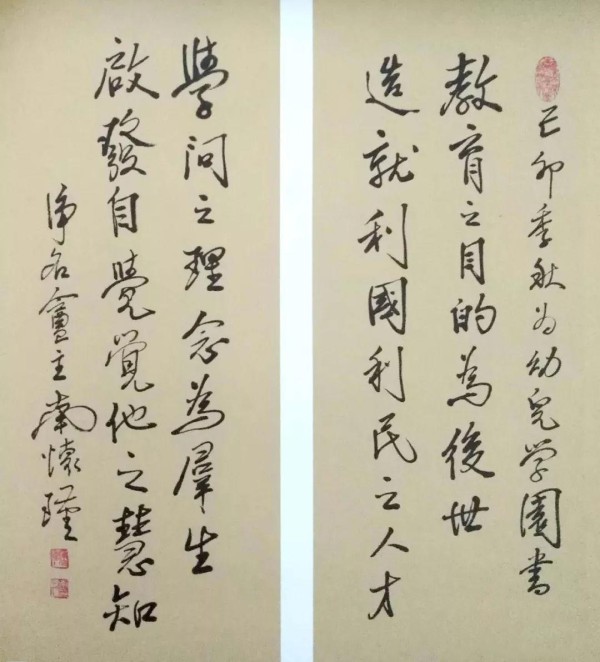 己卯季秋为幼兒学園書
教育之目的為後世
造就利國利民之人才
學问之理念為羣生
啟發自覺覺他之慧知
淨名盦主南懷瑾